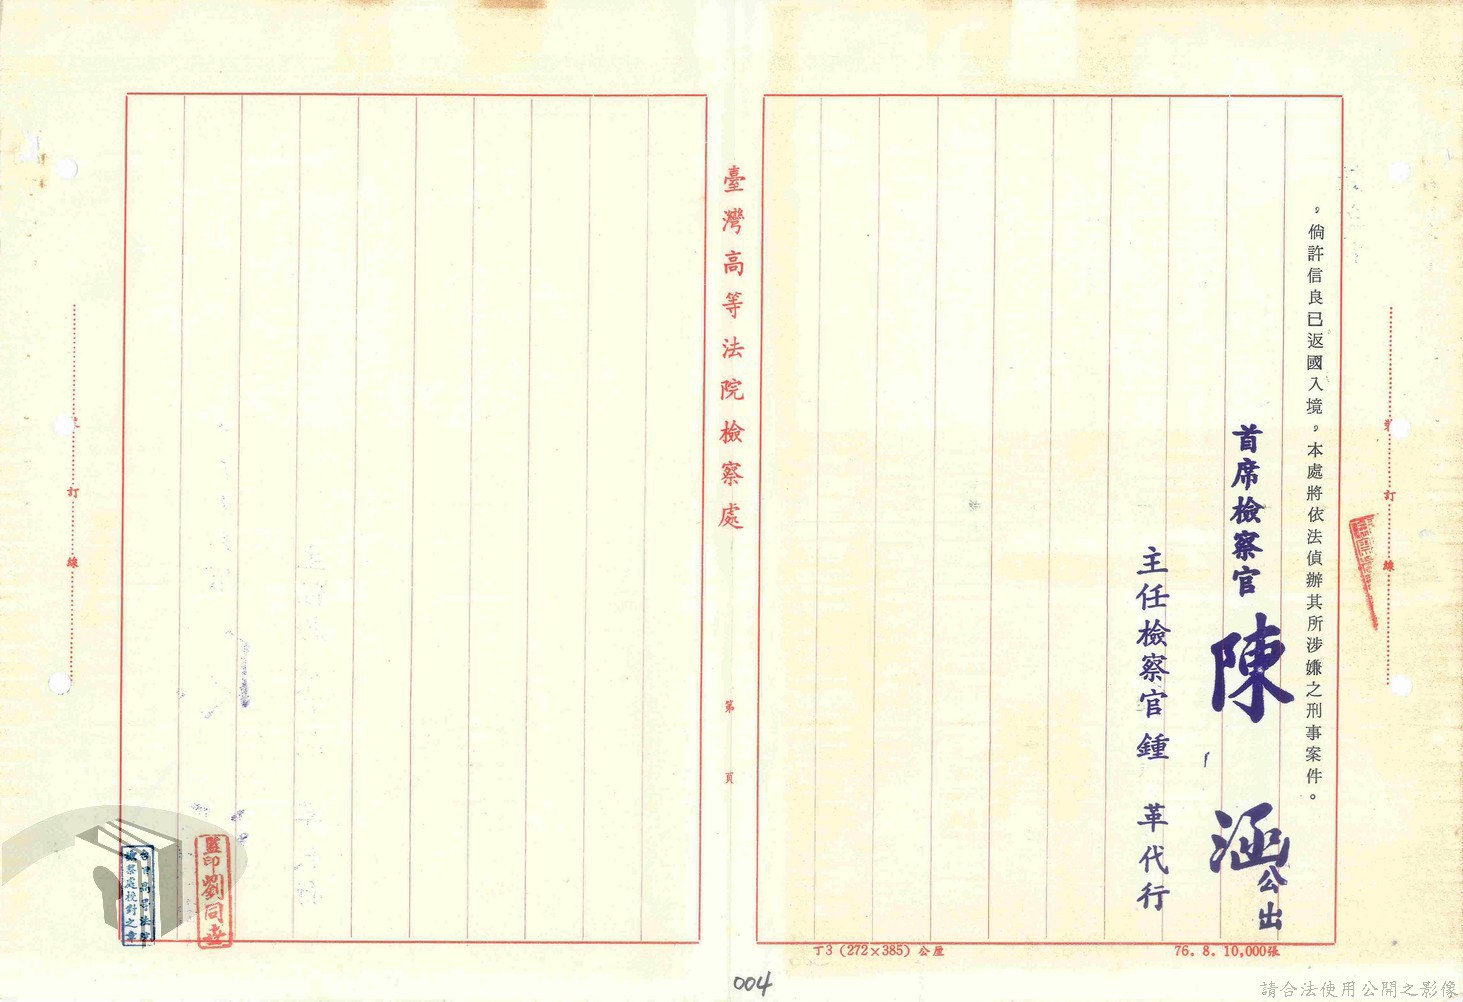 ，倘許信良已返國入境，本處將依法偵辦其所涉嫌之刑事案件。
首席檢察官 陳 涵 公出
主任檢察官 鍾 革 代行
臺灣高等法院檢察處
第 頁
訂 線
訂 線
監印劉同
丁3（272×385）公厘
76. 8. 10,000張
004
請合法使用公開之影像